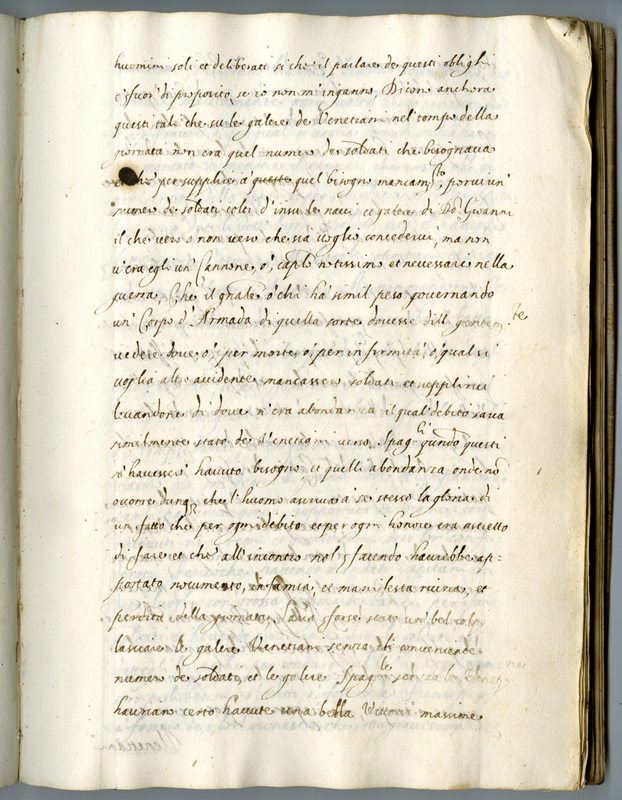 huomini soli et deliberati si che il parlare de questi oblighi
è fuor di proposito, se io non m'inganno, Dicon anchora
questi tali che su le galere de Venetiani nel tempo della
giornata non era quel numero de soldati che bisognava
et che per supplire a queste quel bisogno mancam.to, porvi un'
numero de soldati tolti d' in su le navi et galere di Do: Giovanni
il che vero o non vero che sia voglio concedervi, ma non
v'era egli un' Cannone, ò, cap.lo notissimo et necessario nella
guerra, Che il quale ò chi ha simil peso governando
un' Corpo d' Armada di quella sorte dovesse dilligentem.te
vedere dove, ò, per morte, ò, per infirmità, ò, qual si
voglia altro accidente mancasse soldati et supplirvi
levandone di dove n' era abondanza il qual debito saria
similmente stato de Venetiani verso Spag.li quando questi
n' havesse havuto bisogno, et quelli abondanza onde nõ
occorre dunq. che l'huomo ascriva à se stesso la gloria di
un fatto che per ogni debito et per ogni honore era astretto
di fare et che all'incontro nol facendo haverebbe ap=
portato nocumento, infamia, et manifesta ruina, et
perdita della giornata, Saria forse stato un' bel colpo
lasciare le galere Venetiani senza il conveniente
numero de soldati, et le galere Spag.le senza le
haurian certo havute una bella Vittoria massime
Venetiani